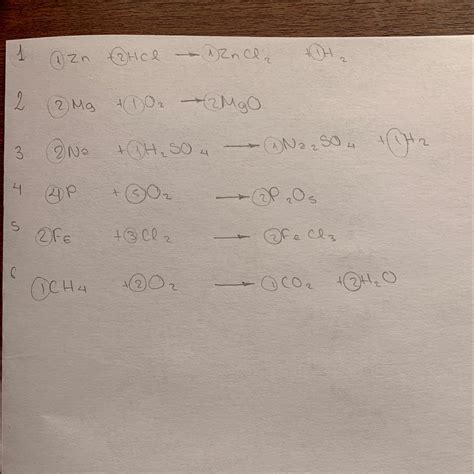 1 ①Zn +②HCl → ①ZnCl₂ +①H₂
2 ②Mg +①O₂ → ②MgO
3 ②Na +①H₂SO₄ → ①Na₂SO₄ +①H₂
4 ④P +⑤O₂ → ②P₂O₅
5 ②Fe +③Cl₂ → ②FeCl₃
6 ①CH₄ +②O₂ → ①CO₂ +②H₂O